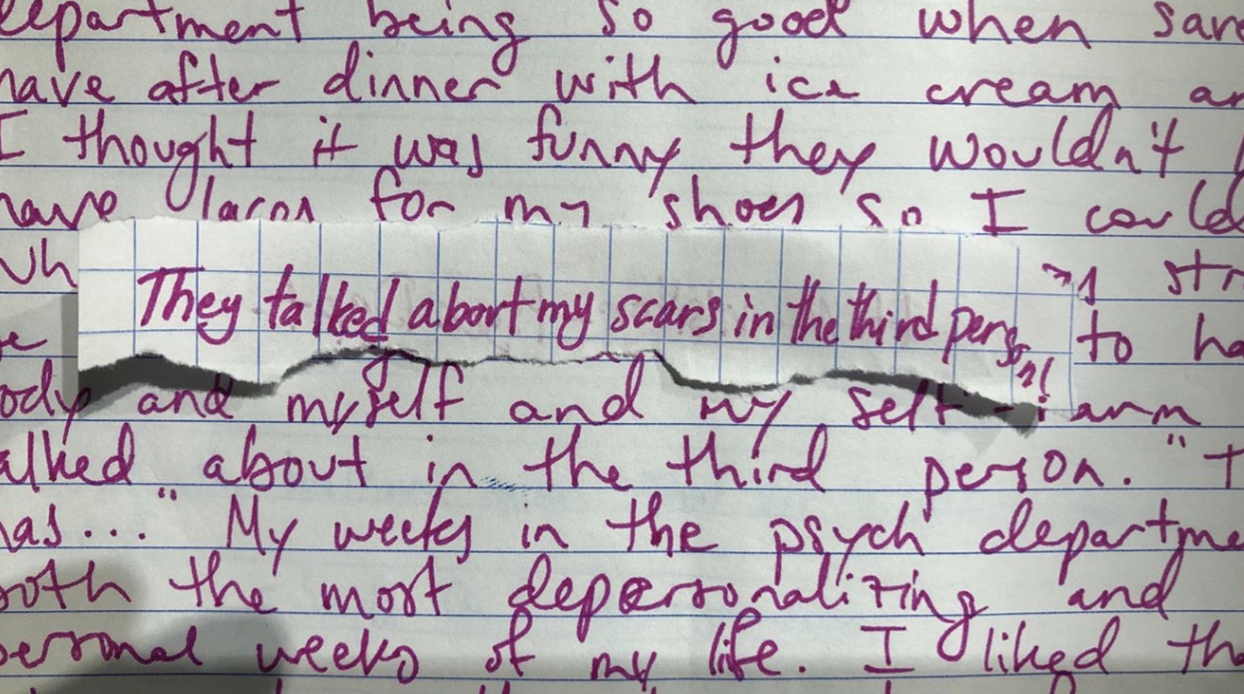 department being so good when
have after dinner with ice cream
I thought it was funny they wouldn't
have laces for my shoes so I could
They talked about my scars in the third person!
to
and myself and my self-
talked about in the third person. "
has..." My weeks in the psych
both the most depersonalizing and
personal weeks of my life. I liked